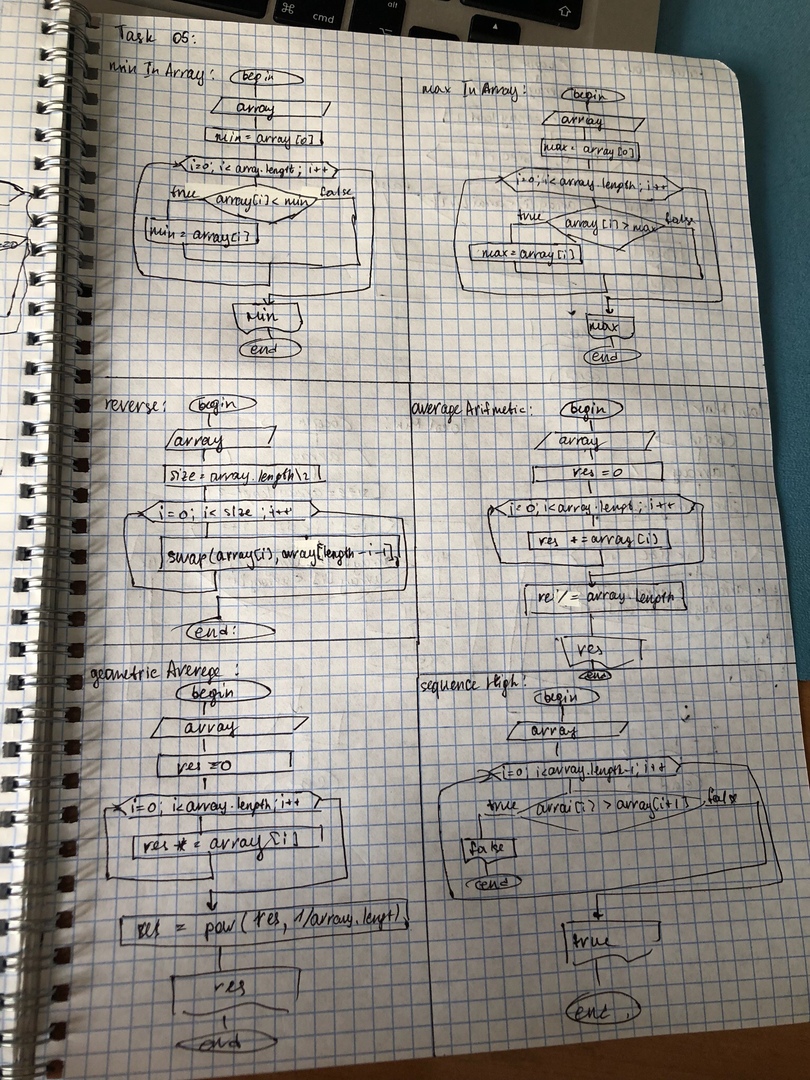 ⌘
cmd
alt
⌥
▲
⇧
Task 05:
min In Array:
begin
array
min = array [0]
i=0; i<array.length; i++
true
array[i] < min
false
min = array[i]
min
end
max In Array:
begin
array
max = array [0]
i=0; i<array.length; i++
true
array [i] > max
false
max = array [i]
max
end
reverse:
begin
array
size = array.length\2
i=0; i< size ; i++
swap(array[i], array[length-i-1]
end:
average Arifmetic:
begin
array
res = 0
i=0; i<array.lengt; i++
res += array[i]
res/= array.length
res
end
geometric Averege :
begin
array
res =0
i=0; i<array.length; i++
res * = array [i]
res = pow( res, 1/array.lengt)
res
end
sequence High:
begin
array
i=0; i<array.length-1; i++
true
arrai[i] > array[i+1]
false
false
end
true
end.